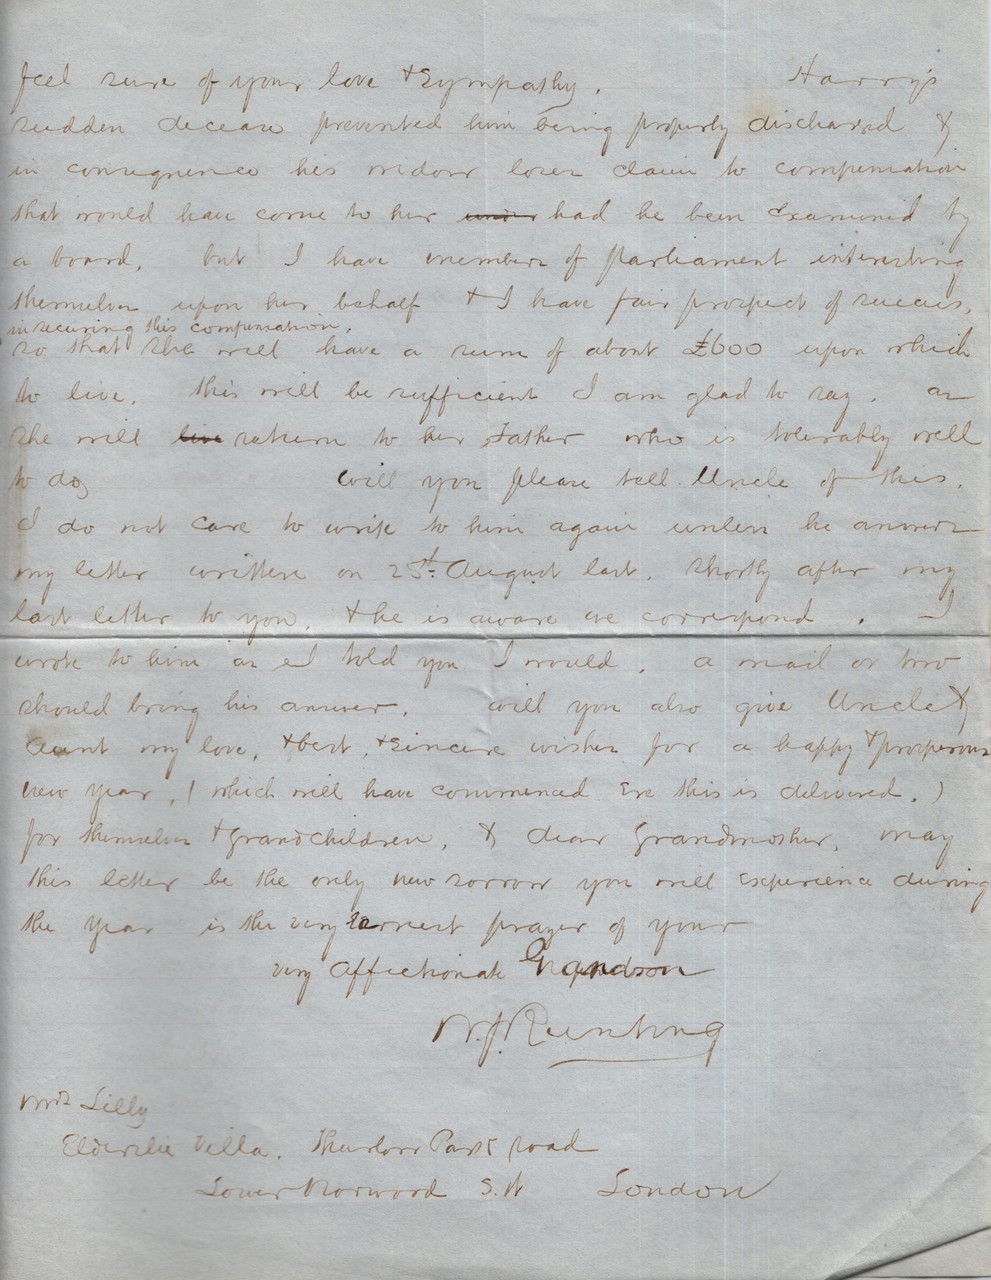 feel sure of your love & Sympathy. Harry's
sudden decease prevented him being properly discharged &
in consequence his widow loses claim to compensation
that would have come to her under had he been Examined by
a board. but I have members of Parliament interesting
themselves upon her behalf & I have fair prospect of success.
in securing this compensation.
so that She will have a sum of about £600 upon which
to live. this will be sufficient I am glad to say. as
She will live return to her Father who is tolerably well
to do, Will you please tell Uncle of this.
I do not care to write to him again unless he answers
my letter written on 25th August last. Shortly after my
last letter to you. & he is aware we correspond. I
wrote to him as I told you I would. a mail or two
should bring his answer. Will you also give Uncle &
Aunt my love, & best, & Sincere wishes for a happy & prosperous
new year, (which will have commenced Ere this is delivered.)
for themselves & Grandchildren, & dear Grandmother, may
this letter be the only new sorrow you will Experience during
the Year is the very Earnest prayer of your
very affectionate Grandson
W. J. Runting
Mrs Lilly
Elderslie Villa. Thurlow Park road
Lower Norwood S.W London